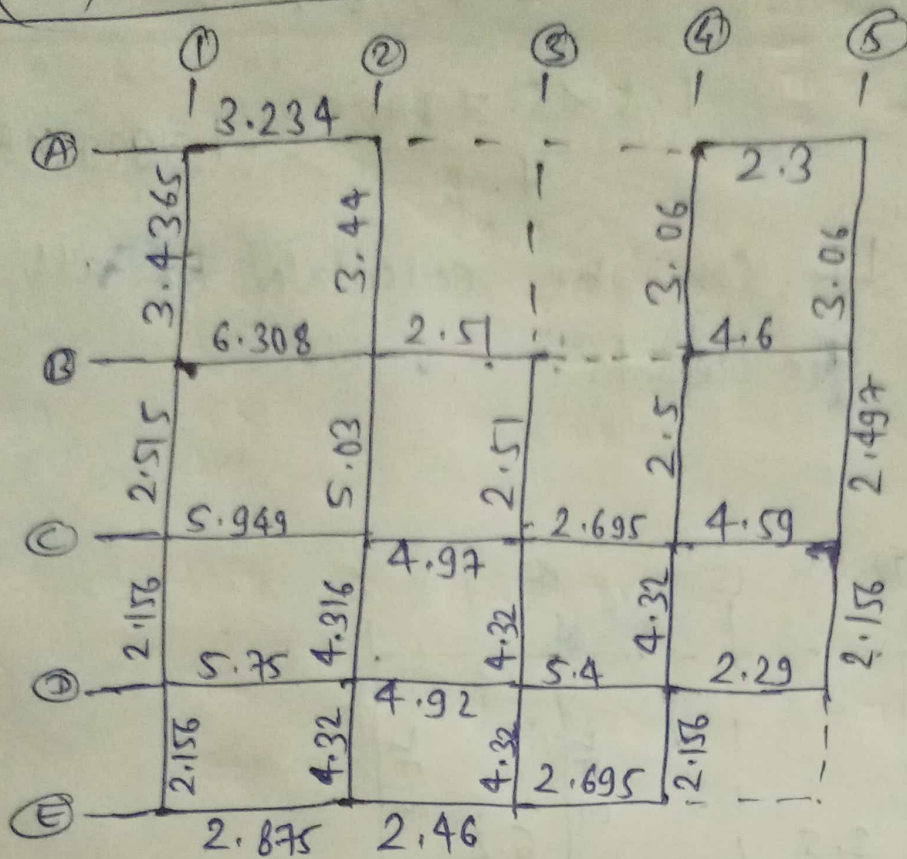 1 2 3 4 5
A 3.234 2.3
3.4365 3.44 3.06 3.06
B 6.308 2.51 4.6
2.515 5.03 2.51 2.5 2.497
C 5.949 4.97 2.695 4.59
2.156 4.316 4.32 4.32 2.156
D 5.75 4.92 5.4 2.29
2.156 4.32 4.32 2.156
E 2.875 2.46 2.695